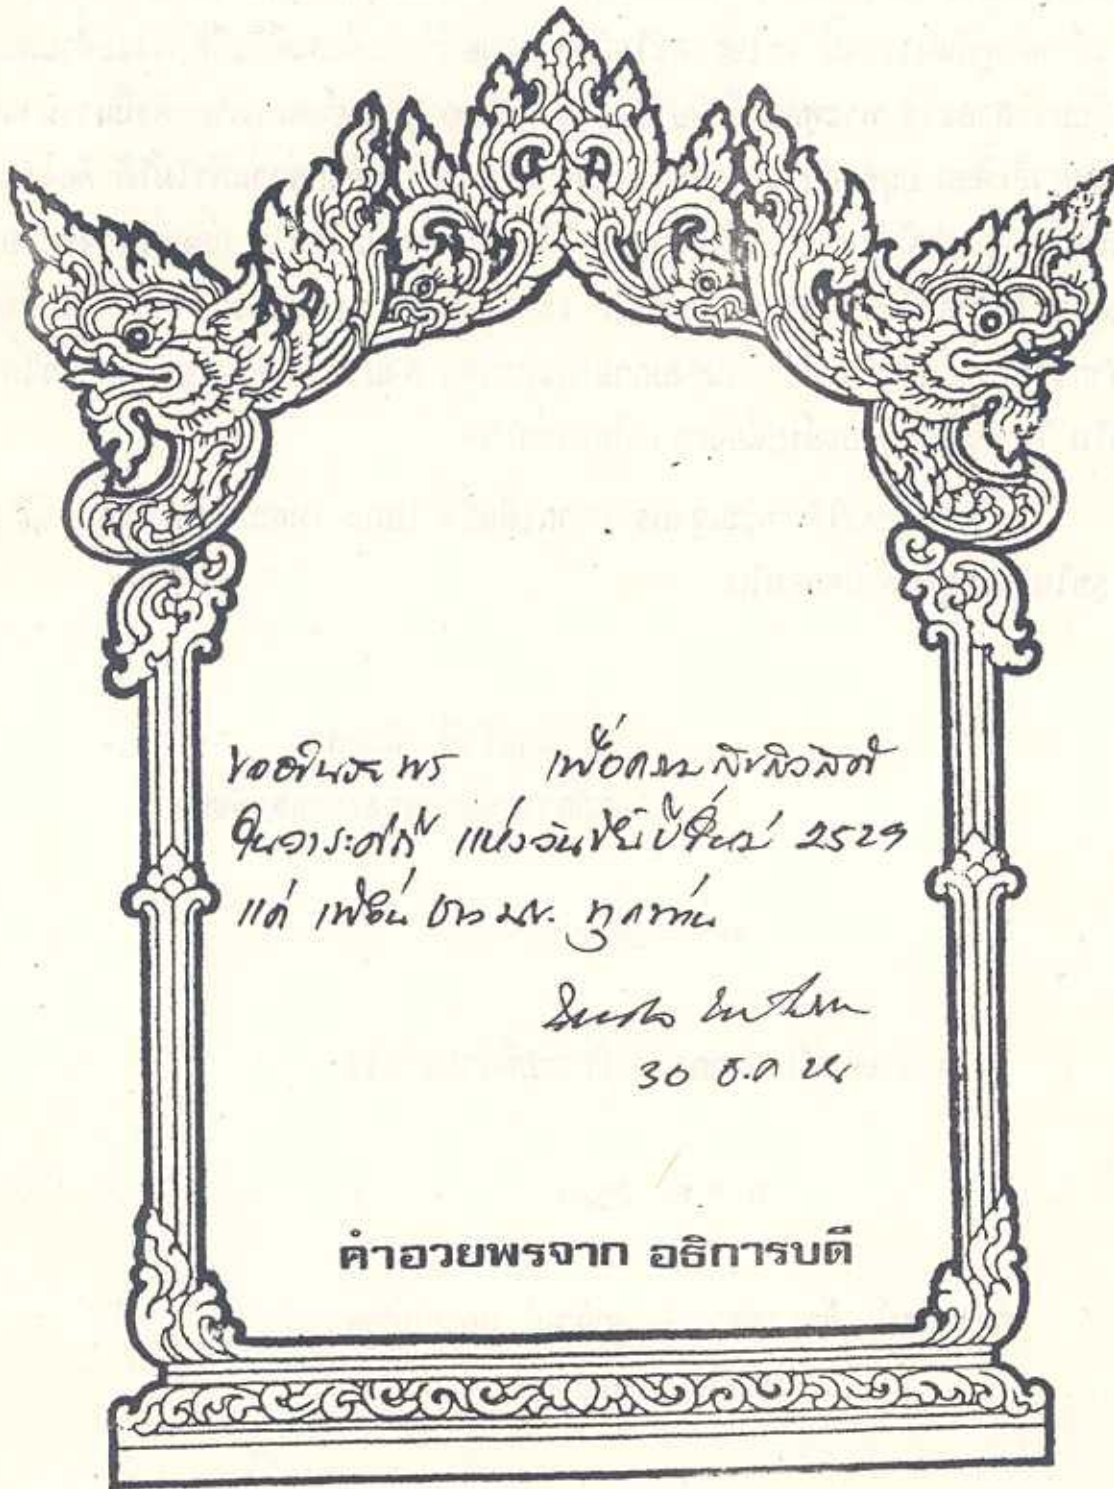 ขออำนวยพร เพื่อความสิริสวัสดิ์
ในวาระดิถี แห่งวันขึ้นปีใหม่ 2529
แด่ เพื่อน ชาว มข. ทุกท่าน
30 ธ.ค 28
คำอวยพรจาก อธิการบดี